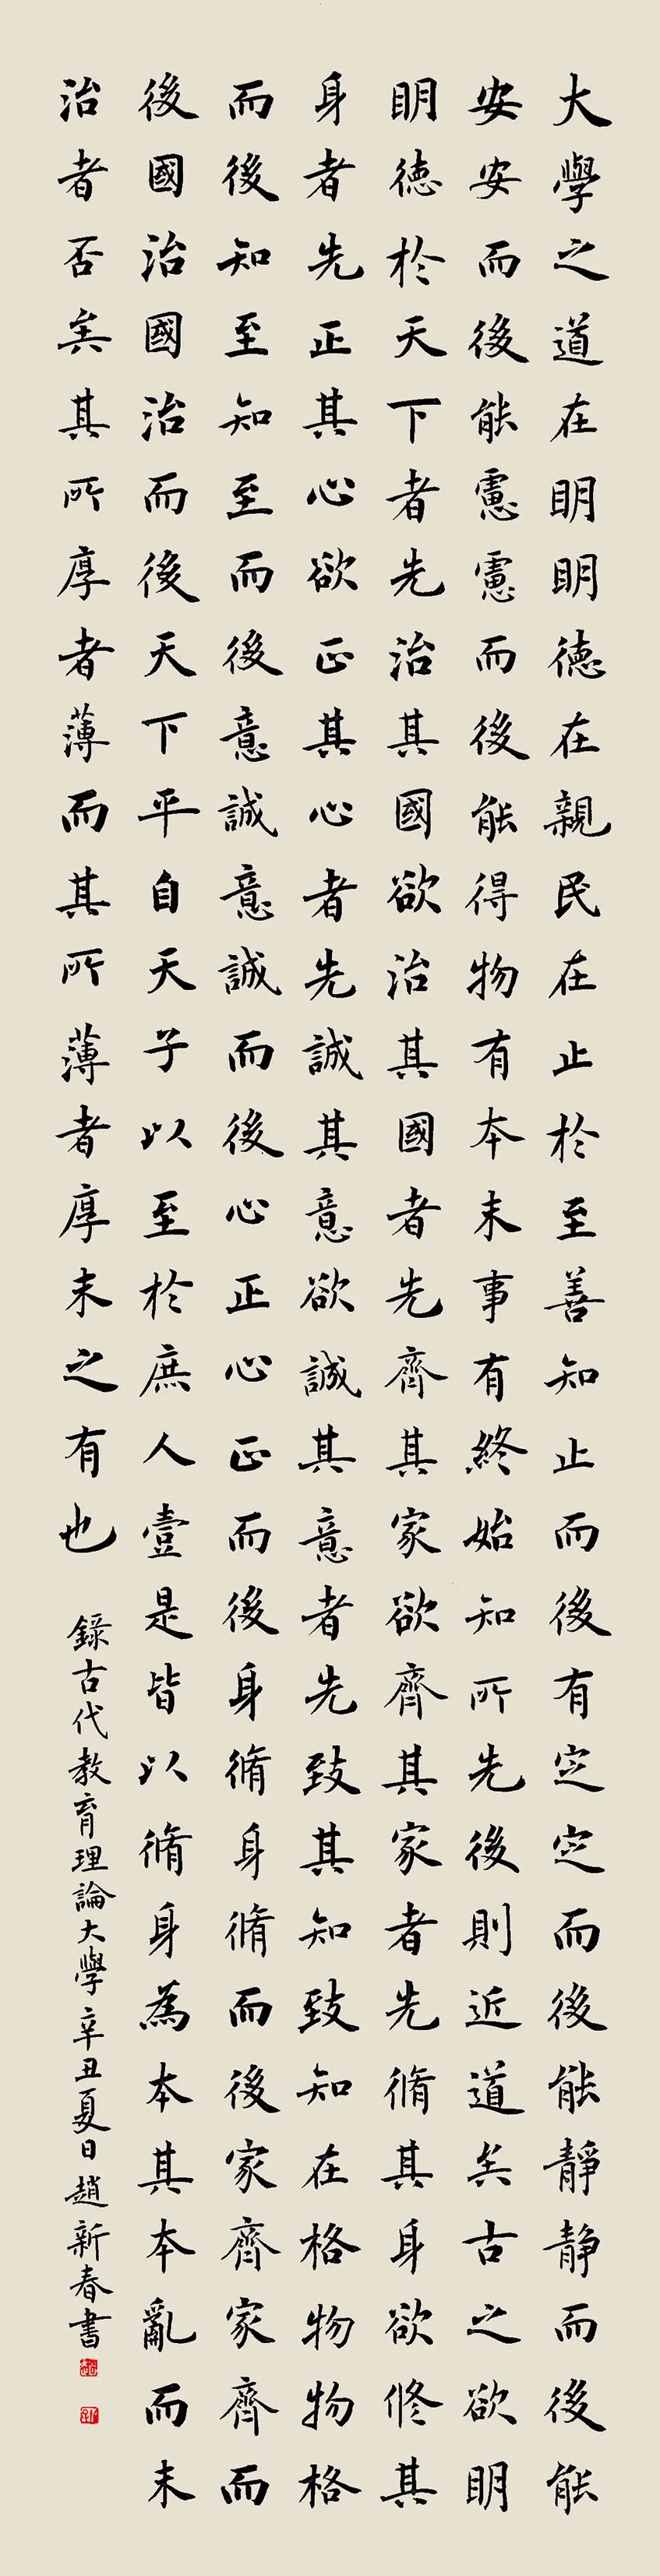 大學之道在明明德在親民在止於至善知止而後有定定而後能靜靜而後能
安安而後能慮慮而後能得物有本末事有終始知所先後則近道矣古之欲明
明德於天下者先治其國欲治其國者先齊其家欲齊其家者先脩其身欲修其
身者先正其心欲正其心者先誠其意欲誠其意者先致其知致知在格物物格
而後知至知至而後意誠意誠而後心正心正而後身脩身脩而後家齊家齊而
後國治國治而後天下平自天子以至於庶人壹是皆以脩身為本其本亂而末
治者否矣其所厚者薄而其所薄者厚未之有也
錄古代教育理論大學辛丑夏日趙新春書